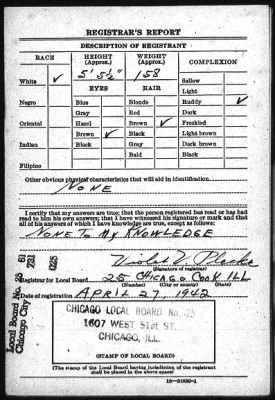 REGISTRAR'S REPORT
DESCRIPTION OF REGISTRANT
RACE HEIGHT (Approx.) WEIGHT (Approx.) COMPLEXION
White ✓ 5' 5½" 158 Sallow
Light
EYES HAIR Ruddy ✓
Negro Blue Blonde
Gray Red Dark
Oriental Hazel Brown ✓ Freckled
Brown ✓ Black Light brown
Indian Black Gray Dark brown
Bald Black
Filipino
Other obvious physical characteristics that will aid in identification
NONE
I certify that my answers are true; that the person registered has read or has had
read to him his own answers; that I have witnessed his signature or mark and that
all of his answers of which I have knowledge are true, except as follows:
NONE TO MY KNOWLEDGE
(Signature of registrar)
Registrar for Local Board 25 CHICAGO COOK ILL
(Number) (City or county) (State)
Date of registration APRIL 27, 1942
Local Board No. 25
Chicago City
CHICAGO LOCAL BOARD No. 25
1607 WEST 51st ST.
CHICAGO, ILL.
(STAMP OF LOCAL BOARD)
(The stamp of the Local Board having jurisdiction of the registrant
shall be placed in the above space)